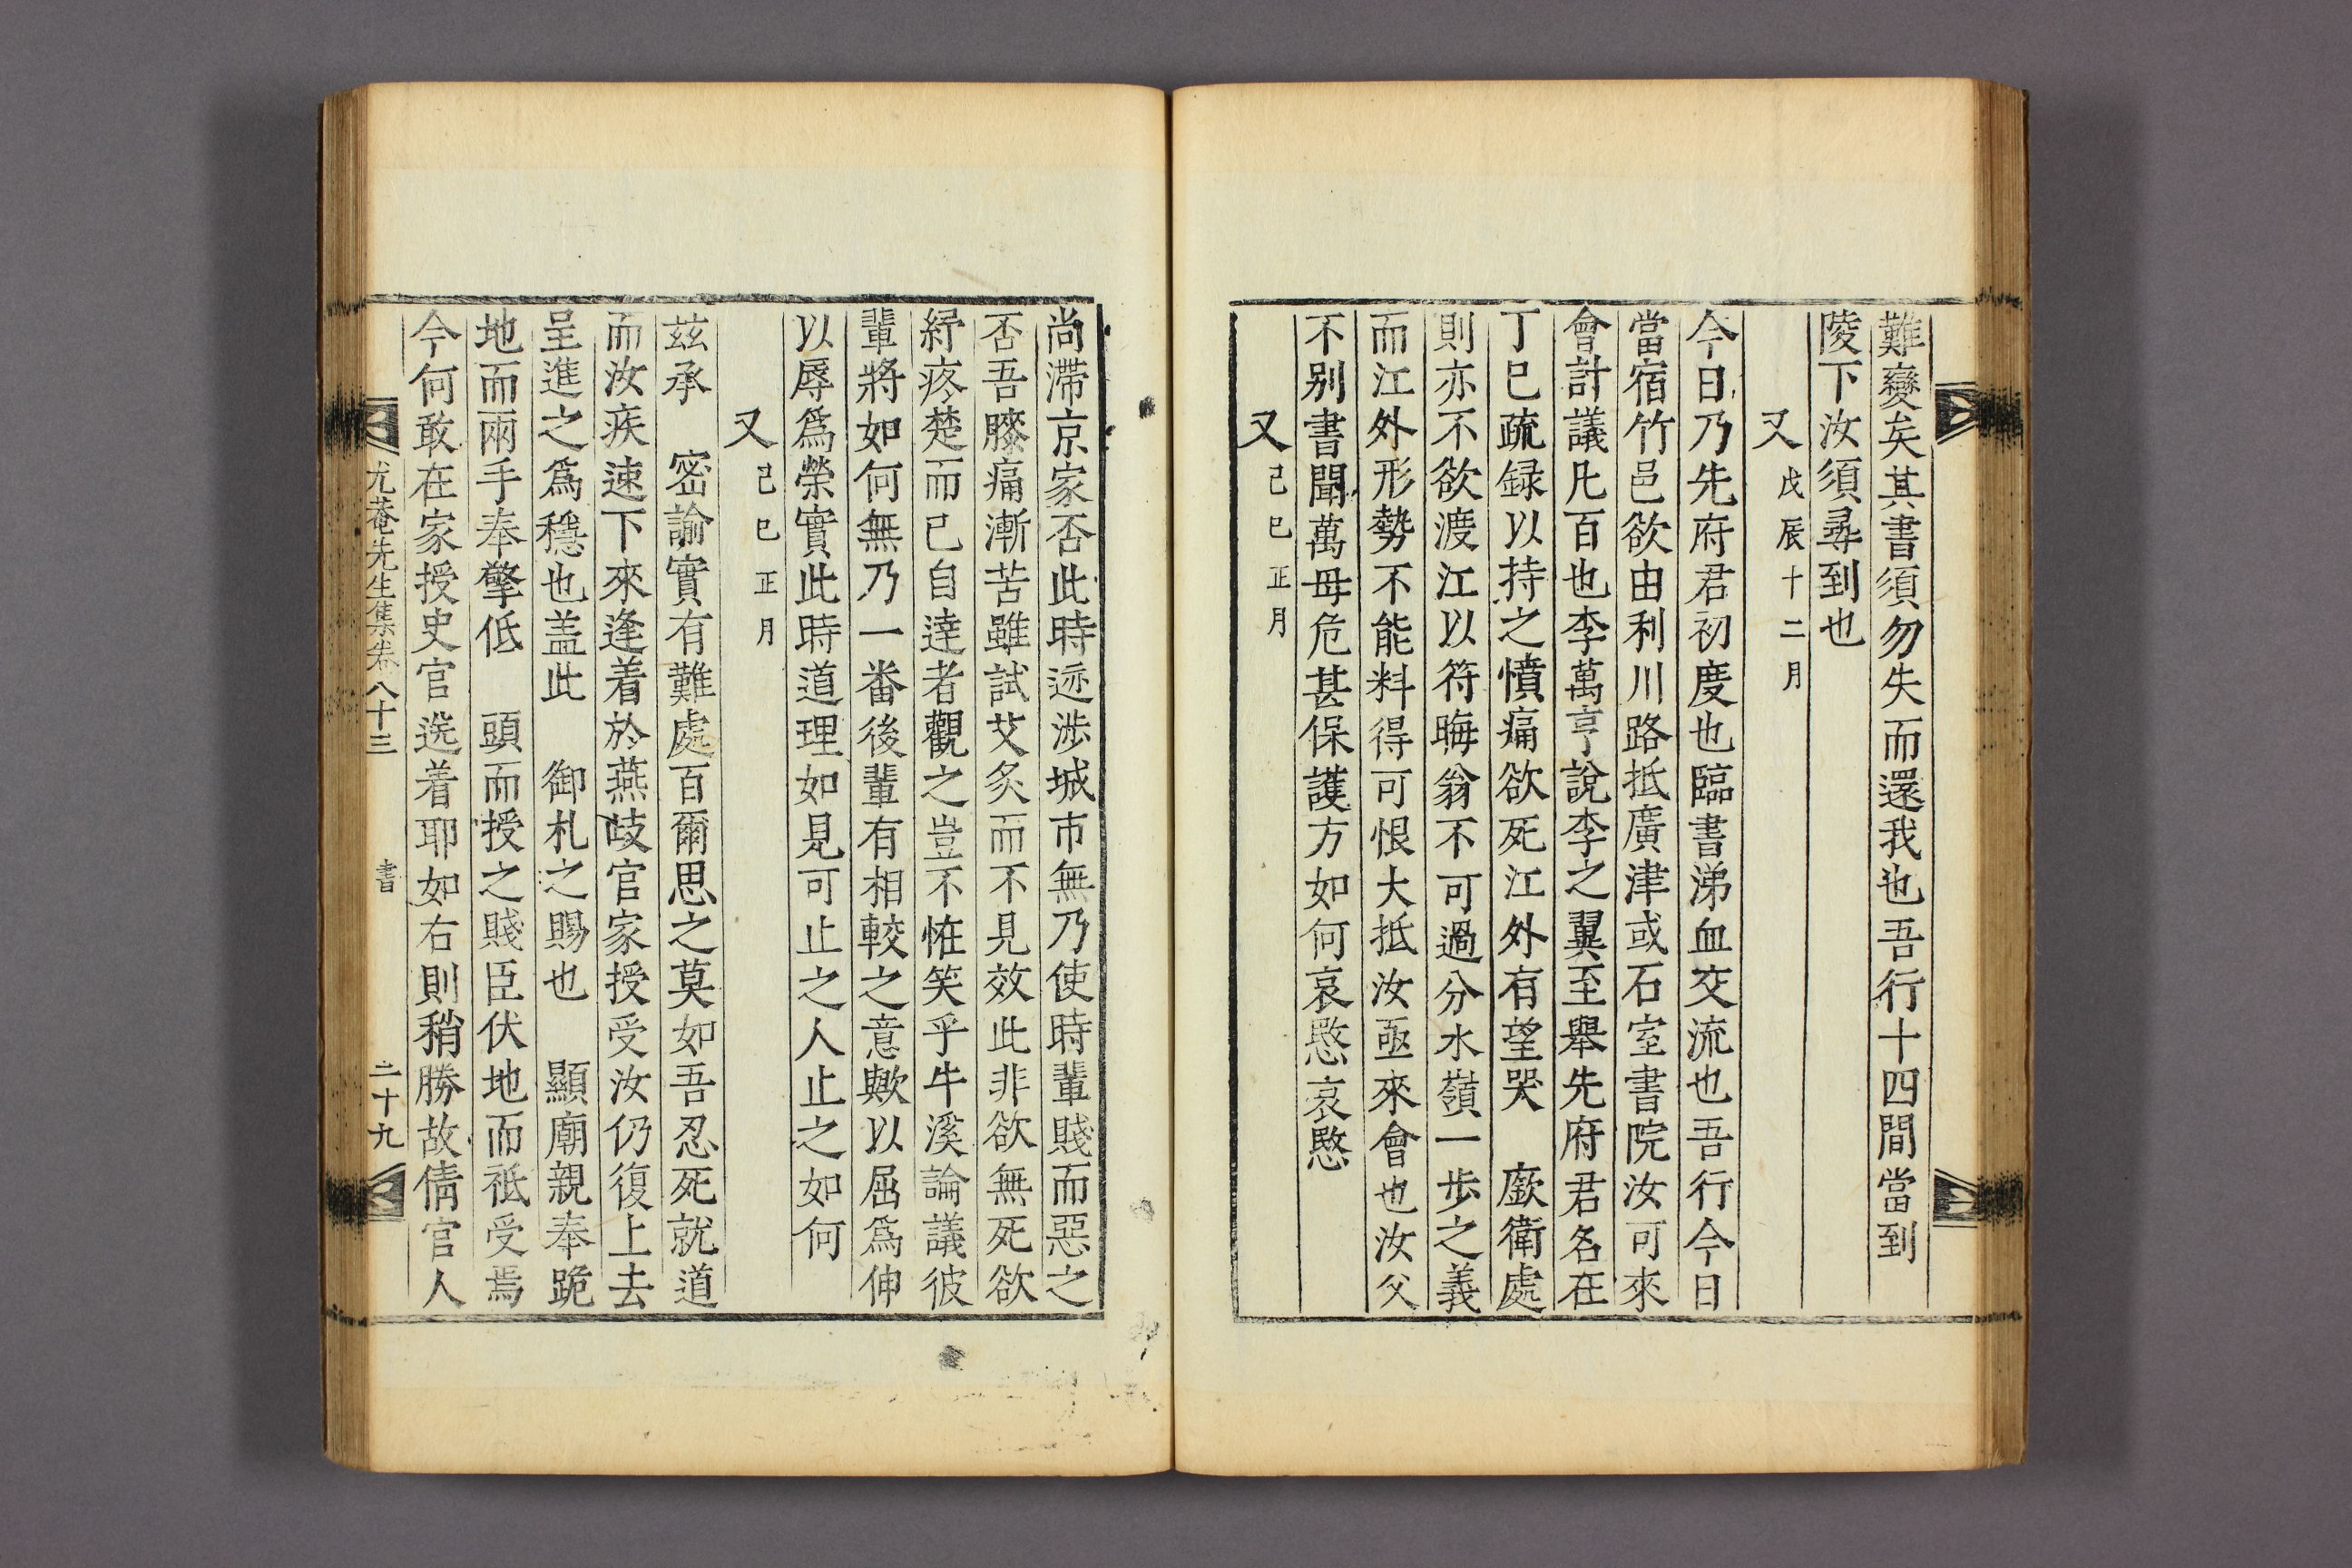 難變矣其書須勿失而還我也吾行十四間當到
陵下汝須尋到也
又戊辰十二月
今日乃先府君初度也臨書涕血交流也吾行今日
當宿竹邑欲由利川路抵廣津或石室書院汝可來
會計議凡百也李萬亨說李之翼至舉先府君名在
丁巳疏録以持之憤痛欲死江外有望哭 廞衛處
則亦不欲渡江以符晦翁不可過分水嶺一步之義
而江外形勢不能料得可恨大抵汝亟來會也汝父
不別書聞萬母危甚保護方如何哀愍哀愍
又己巳正月
尚滯京家否此時迹涉城市無乃使時輩賤而惡之
否吾膝痛漸苦雖試艾炙而不見效此非欲無死欲
紓疼楚而已自達者觀之豈不恠笑乎牛溪論議彼
輩將如何無乃一番後輩有相較之意歟以屈爲伸
以辱爲榮實此時道理如見可止之人止之如何
又己巳正月
茲承 密諭實有難處百爾思之莫如吾忍死就道
而汝疾速下來逢着於燕歧官家授受汝仍復上去
呈進之爲穩也盖此 御札之賜也 顯廟親奉跪
地而兩手奉擎低 頭而授之賤臣伏地而祗受焉
今何敢在家授史官送着耶如右則稍勝故倩官人
尤菴先生集卷八十三 書 二十九